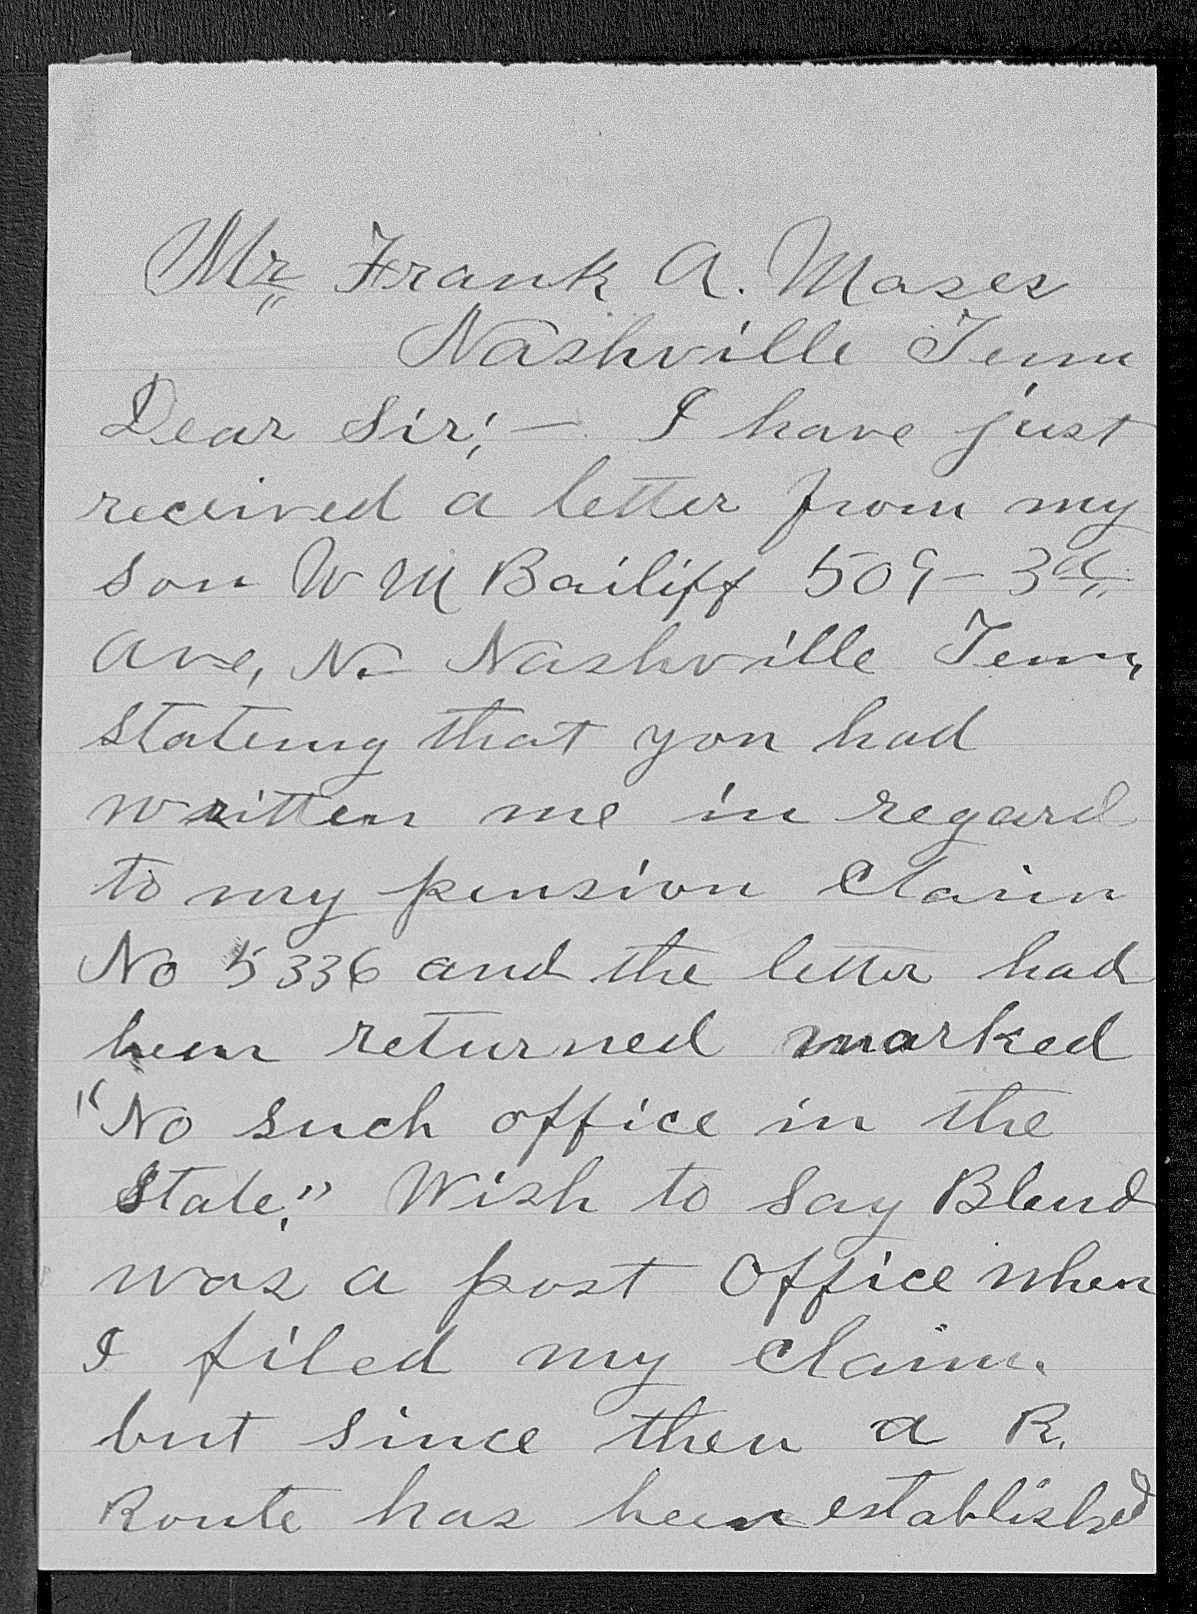 Mr Frank A. Moses
Nashville Tenn
Dear Sir; — I have just
received a letter from my
son W M Bailiff 509 – 3d
Ave, N. – Nashville Tenn,
stateing that you had
written me in regard
to my pension Claim
No 5336 and the letter had
been returned marked
"No such office in the
State." Wish to say Blend
was a post Office when
I filed my Claim.
but since then a R.
Route has been established